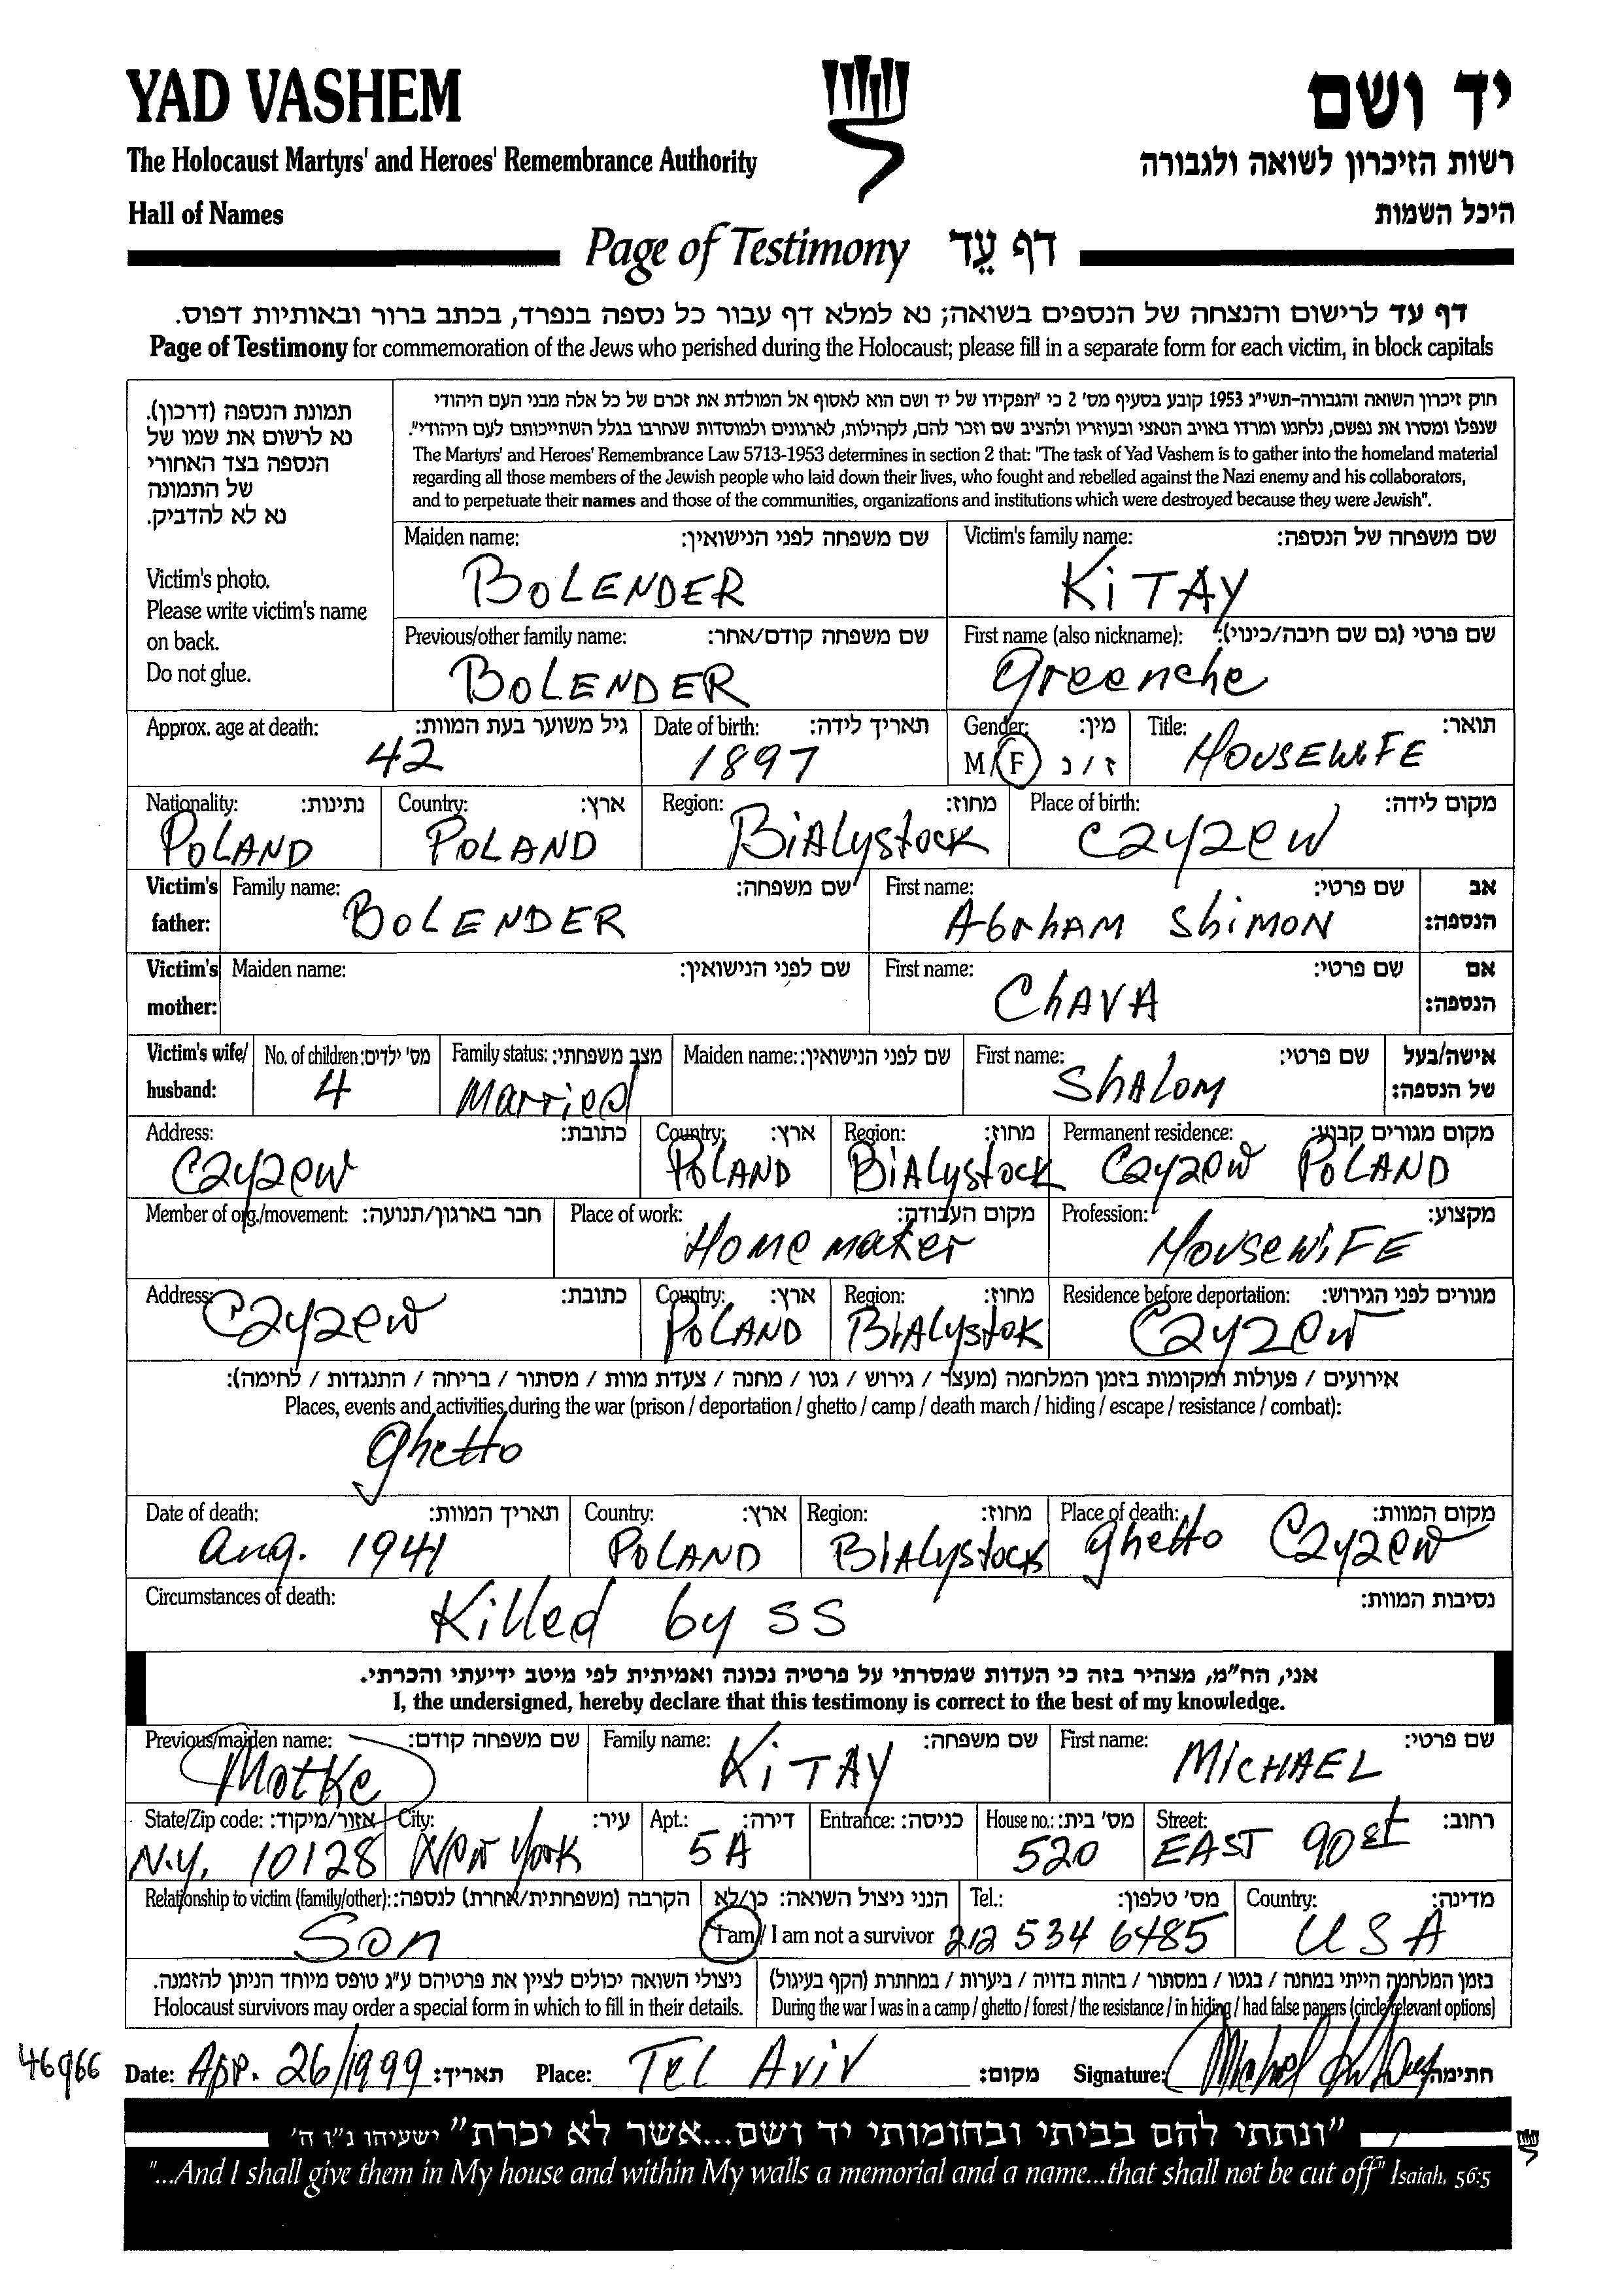 YAD VASHEM
יד ושם
The Holocaust Martyrs' and Heroes' Remembrance Authority
רשות הזיכרון לשואה ולגבורה
Hall of Names
היכל השמות
Page of Testimony דף עֵד
דף עד לרישום והנצחה של הנספים בשואה; נא למלא דף עבור כל נספה בנפרד, בכתב ברור ובאותיות דפוס.
Page of Testimony for commemoration of the Jews who perished during the Holocaust; please fill in a separate form for each victim, in block capitals
תמונת הנספה (דרכון).
נא לרשום את שמו של
הנספה בצד האחורי
של התמונה
נא לא להדביק.
Victim's photo.
Please write victim's name
on back.
Do not glue.
חוק זיכרון השואה והגבורה-תשי"ג 1953 קובע בסעיף מס' 2 כי "תפקידו של יד ושם הוא לאסוף אל המולדת את זכרם של כל אלה מבני העם היהודי
שנפלו ומסרו את נפשם, נלחמו ומרדו באויב הנאצי ובעוזריו ולהציב שם וזכר להם, לקהילות, לארגונים ולמוסדות שנחרבו בגלל השתייכותם לעם היהודי".
The Martyrs' and Heroes' Remembrance Law 5713-1953 determines in section 2 that: "The task of Yad Vashem is to gather into the homeland material
regarding all those members of the Jewish people who laid down their lives, who fought and rebelled against the Nazi enemy and his collaborators,
and to perpetuate their names and those of the communities, organizations and institutions which were destroyed because they were Jewish".
Maiden name: שם משפחה לפני הנישואין: Victim's family name: שם משפחה של הנספה:
BOLENDER KiTAY
Previous/other family name: שם משפחה קודם/אחר: First name (also nickname): שם פרטי (גם שם חיבה/כינוי):
BOLENDER Greenche
Approx. age at death: גיל משוער בעת המוות: Date of birth: תאריך לידה: Gender: מין: Title: תואר:
42 1897 M/F ז / נ HOUSEWIFE
Nationality: נתינות: Country: ארץ: Region: מחוז: Place of birth: מקום לידה:
POLAND POLAND BiALystock Czyzew
Victim's Family name: שם משפחה: First name: שם פרטי: אב
father: BOLENDER AbrhAM ShiMON הנספה:
Victim's Maiden name: שם לפני הנישואין: First name: שם פרטי: אם
mother: ChAVA הנספה:
Victim's wife/ No. of children: מס' ילדים: Family status: מצב משפחתי: Maiden name: שם לפני הנישואין: First name: שם פרטי: אישה/בעל
husband: 4 Married SHALOM של הנספה:
Address: כתובת: Country: ארץ: Region: מחוז: Permanent residence: מקום מגורים קבוע:
Czyzew POLAND BiALystock Czyzew POLAND
Member of org./movement: חבר בארגון/תנועה: Place of work: מקום העבודה: Profession: מקצוע:
Home maker HousewiFE
Address: כתובת: Country: ארץ: Region: מחוז: Residence before deportation: מגורים לפני הגירוש:
Czyzew POLAND BiALystok Czyzew
אירועים / פעולות ומקומות בזמן המלחמה (מעצר / גירוש / גטו / מחנה / צעדת מוות / מסתור / בריחה / התנגדות / לחימה):
Places, events and activities during the war (prison / deportation / ghetto / camp / death march / hiding / escape / resistance / combat):
ghetto
Date of death: תאריך המוות: Country: ארץ: Region: מחוז: Place of death: מקום המוות:
Aug. 1941 POLAND BIALystock ghetto Czyzew
Circumstances of death: נסיבות המוות:
Killed by SS
אני, הח"מ, מצהיר בזה כי העדות שמסרתי על פרטיה נכונה ואמיתית לפי מיטב ידיעתי והכרתי.
I, the undersigned, hereby declare that this testimony is correct to the best of my knowledge.
Previous/maiden name: שם משפחה קודם: Family name: שם משפחה: First name: שם פרטי:
Motke KiTAY MICHAEL
State/Zip code: אזור/מיקוד: City: עיר: Apt.: דירה: Entrance: כניסה: House no.: מס' בית: Street: רחוב:
N.Y. 10128 New York 5A 520 EAST 90 st
Relationship to victim (family/other): הקרבה (משפחתית/אחרת) לנספה: הנני ניצול השואה: כן/לא Tel.: מס' טלפון: Country: מדינה:
Son I am / I am not a survivor 212 534 6485 USA
ניצולי השואה יכולים לציין את פרטיהם ע"ג טופס מיוחד הניתן להזמנה. בזמן המלחמה הייתי במחנה / בגטו / במסתור / בזהות בדויה / ביערות / במחתרת (הקף בעיגול)
Holocaust survivors may order a special form in which to fill in their details. During the war I was in a camp / ghetto / forest / the resistance / in hiding / had false papers (circle relevant options)
46966 Date: App. 26/1999 תאריך: Place: TEL AViV מקום: Signature: חתימה:
"ונתתי להם בביתי ובחומותי יד ושם...אשר לא יכרת" ישעיהו נ"ו ה'
"...And I shall give them in My house and within My walls a memorial and a name...that shall not be cut off" Isaiah, 56:5